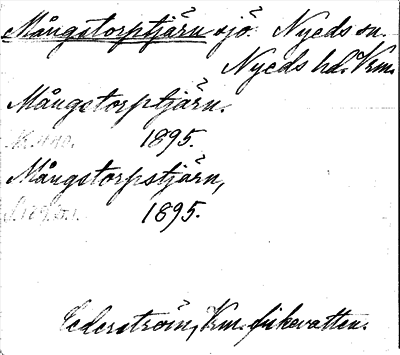 Mångstorptjärn sjö Nyeds sn.
Nyeds hd. Vrm.
Mångstorptjärn.
1895.
Mångstorpstjärn,
1895.
Cederström, Vrm. fiskevatten.